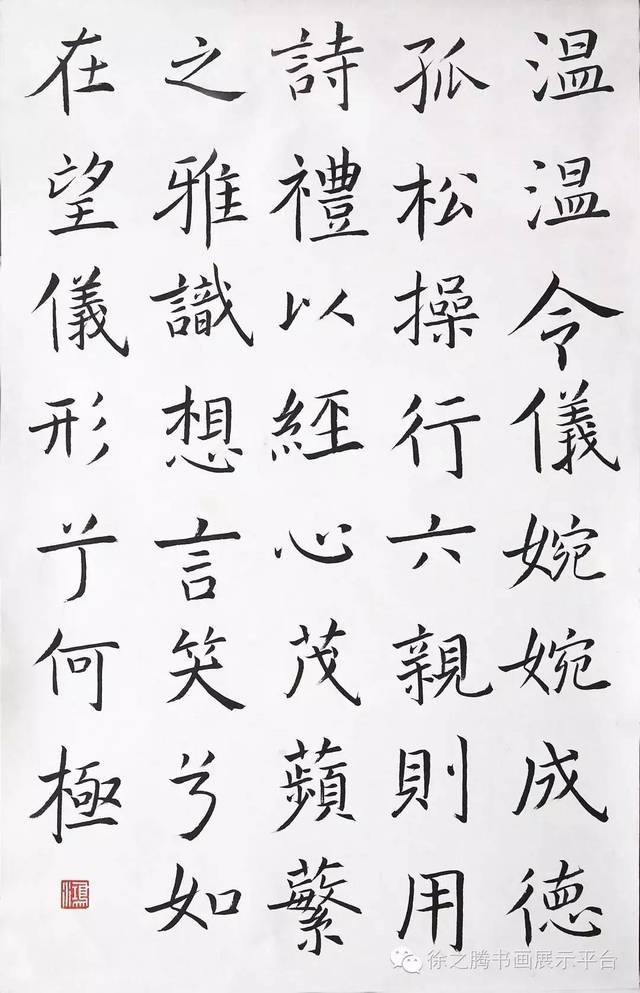 溫溫令儀婉婉成德
孤松操行六親則用
詩禮以經心茂蘋蘩
之雅識想言笑兮如
在望儀形兮何極
鴻
徐之腾书画展示平台